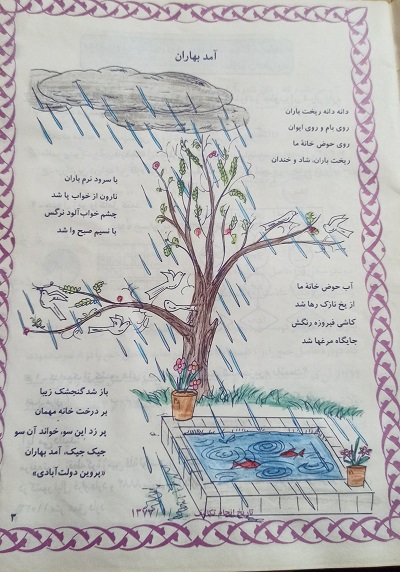 آمد بهاران
دانه دانه ریخت باران
روی بام و روی ایوان
روی حوض خانهٔ ما
ریخت باران، شاد و خندان
با سرود نرم باران
نارون از خواب پا شد
چشم خواب‌آلود نرگس
با نسیم صبح وا شد
آب حوض خانهٔ ما
از یخ نازک رها شد
کاشی فیروزه رنگش
جایگاه مرغها شد
باز شد گنجشک زیبا
بر درخت خانه مهمان
پر زد این سو، خواند آن سو
جیک جیک، آمد بهاران
«پروین دولت‌آبادی»
تاریخ انجام تکلیف
۱۳۶۷/
۳